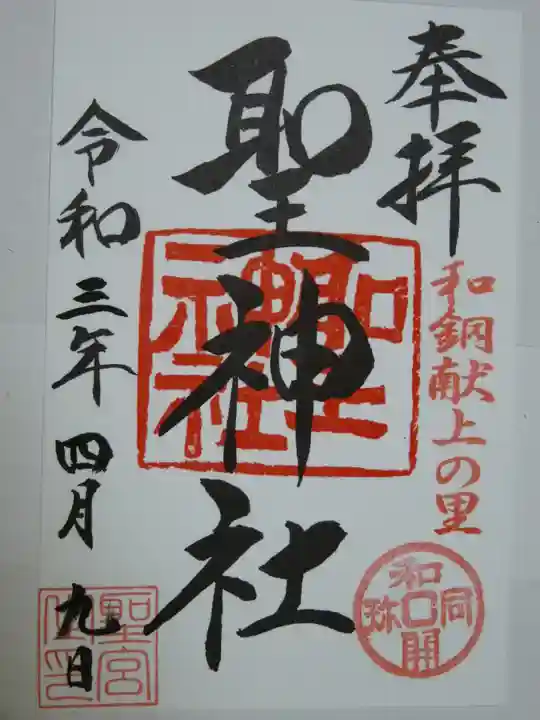 奉拝
和銅献上の里
和同開珎
聖神社
聖神社
令和三年四月九日
聖宮